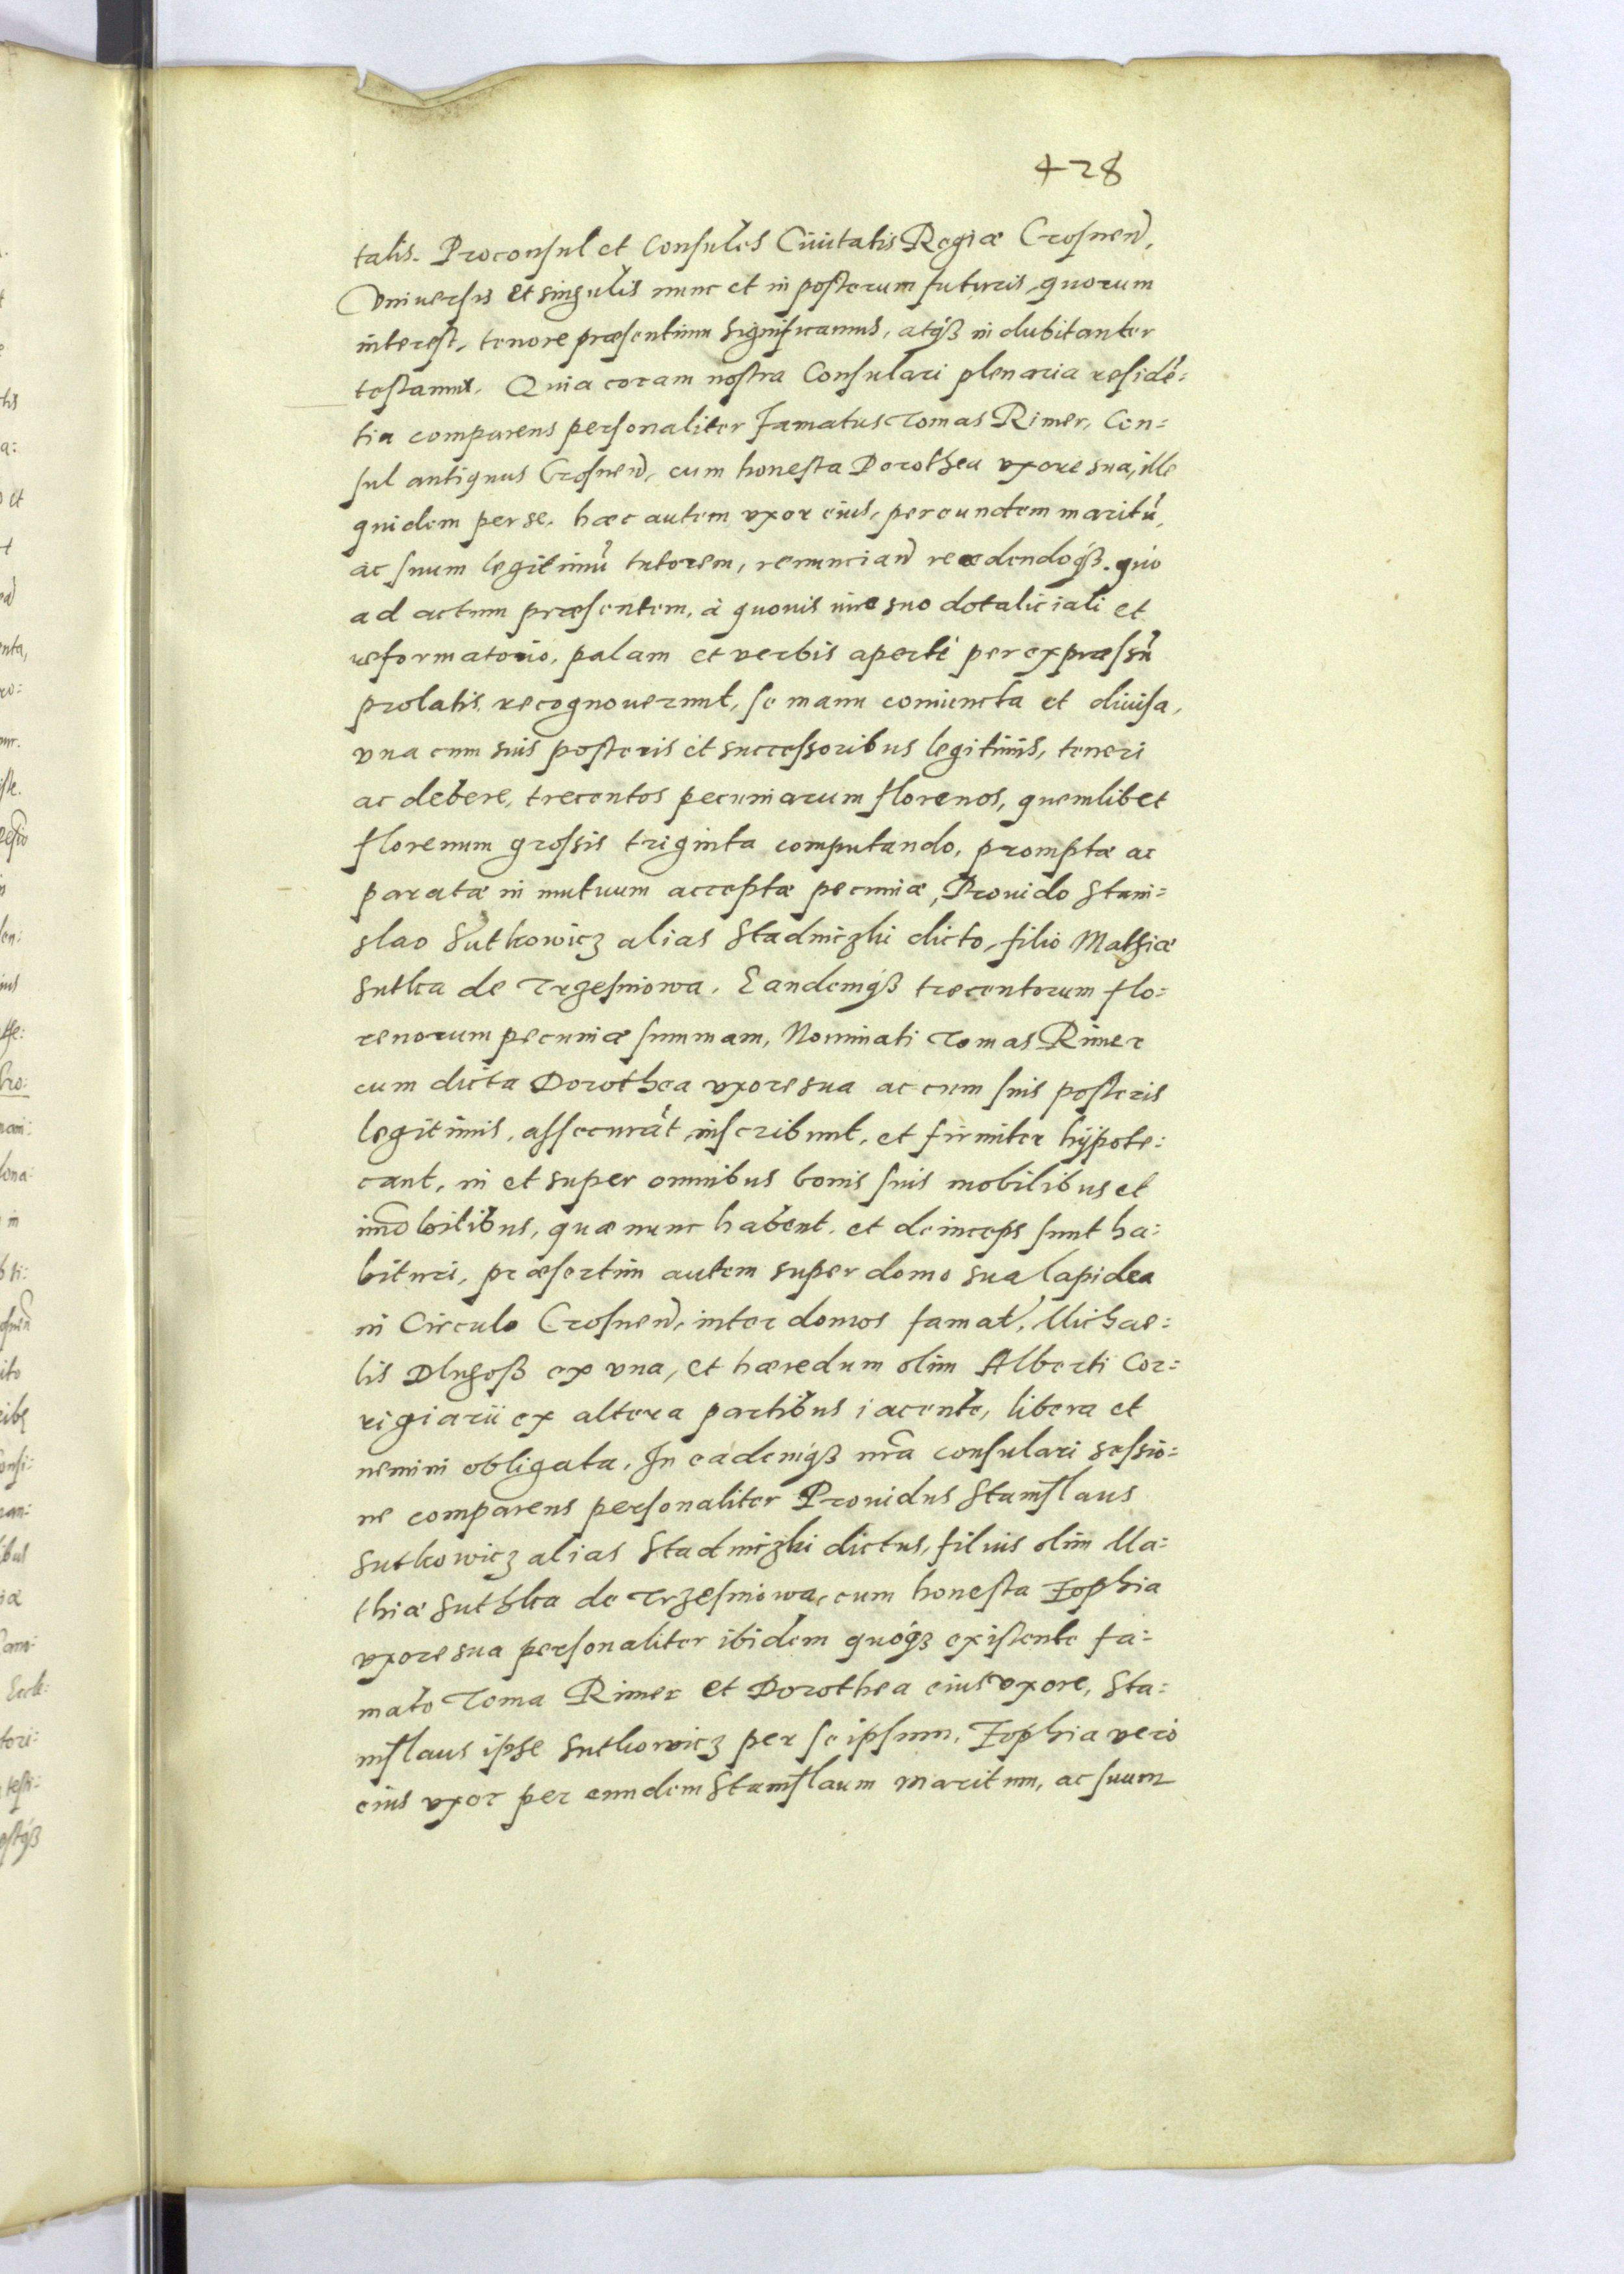 428
talis. Proconsul et Consules Ciuitatis Regiæ Crosnen̄,
Vniuersis et singulis nunc et in posterum futuris, quorum
interest, tenore præsentium significamus, atq́ꝫ indubitanter
testamur. Quia coram nostra Consulari plenaria residē=
tia comparens personaliter Famatus Tomas Rimer, Con=
sul antiquus Crosnen̄, cum honesta Dorothea vxore sua, ille
quidem per se, hæc autem vxor eius, per eundem maritū,
ac suum legitimū tutorem, renuncian̄ recedendoq́ꝫ. quo
ad actum præsentem, à quouis iure suo dotaliciali et
reformatorio, palam et verbis aperte per expræssū
prolatis recognouerunt, se manu coniuncta et diuisa,
vna cum suis posteris et successoribus legitimis, teneri
ac debere, trecentos pecuniarum florenos, quemlibet
florenum grossis triginta computando, promptæ ac
paratæ in mutuum acceptæ pecuniæ, Prouido Stani=
slao Sutkowicz alias Stadniczki dicto, filio Mathiæ
Sutka de Trzesniowa. Eandemq́ꝫ trecentorum flo=
renorum pecuniæ summam, Nominati Tomas Rimer
cum dicta Dorothea vxore sua ac cum suis posteris
legitimis, assecurāt, inscribunt, et firmiter hÿpote=
cant, in et super omnibus bonis suis mobilibus et
im̄obilibus, quæ nunc habent, et deinceps sunt ha=
bituri, præsertim autem super domo sua lapidea
in Circulo Crosnen̄, inter domos famat. Michae=
lis Dlugoß ex vna, et hæredum olim Alberti Cor=
rigiarii ex altera partibus iacente, libera et
nemini obligata. In eademq́ꝫ nr̄a consulari sessio=
ne comparens personaliter Prouidus Stanislaus
Sutkowicz alias Stadniczki dictus, filius olim Ma=
thiæ Suthka de Trzesniowa, cum honesta Zophia
vxore sua personaliter ibidem quoq́ꝫ existente fa=
mato Toma Rimer et Dorothea eius vxore, Sta=
nislaus ipse Sutkowicz per se ipsum, Zophia vero
eius vxor per eundem Stanislaum maritum, ac suum